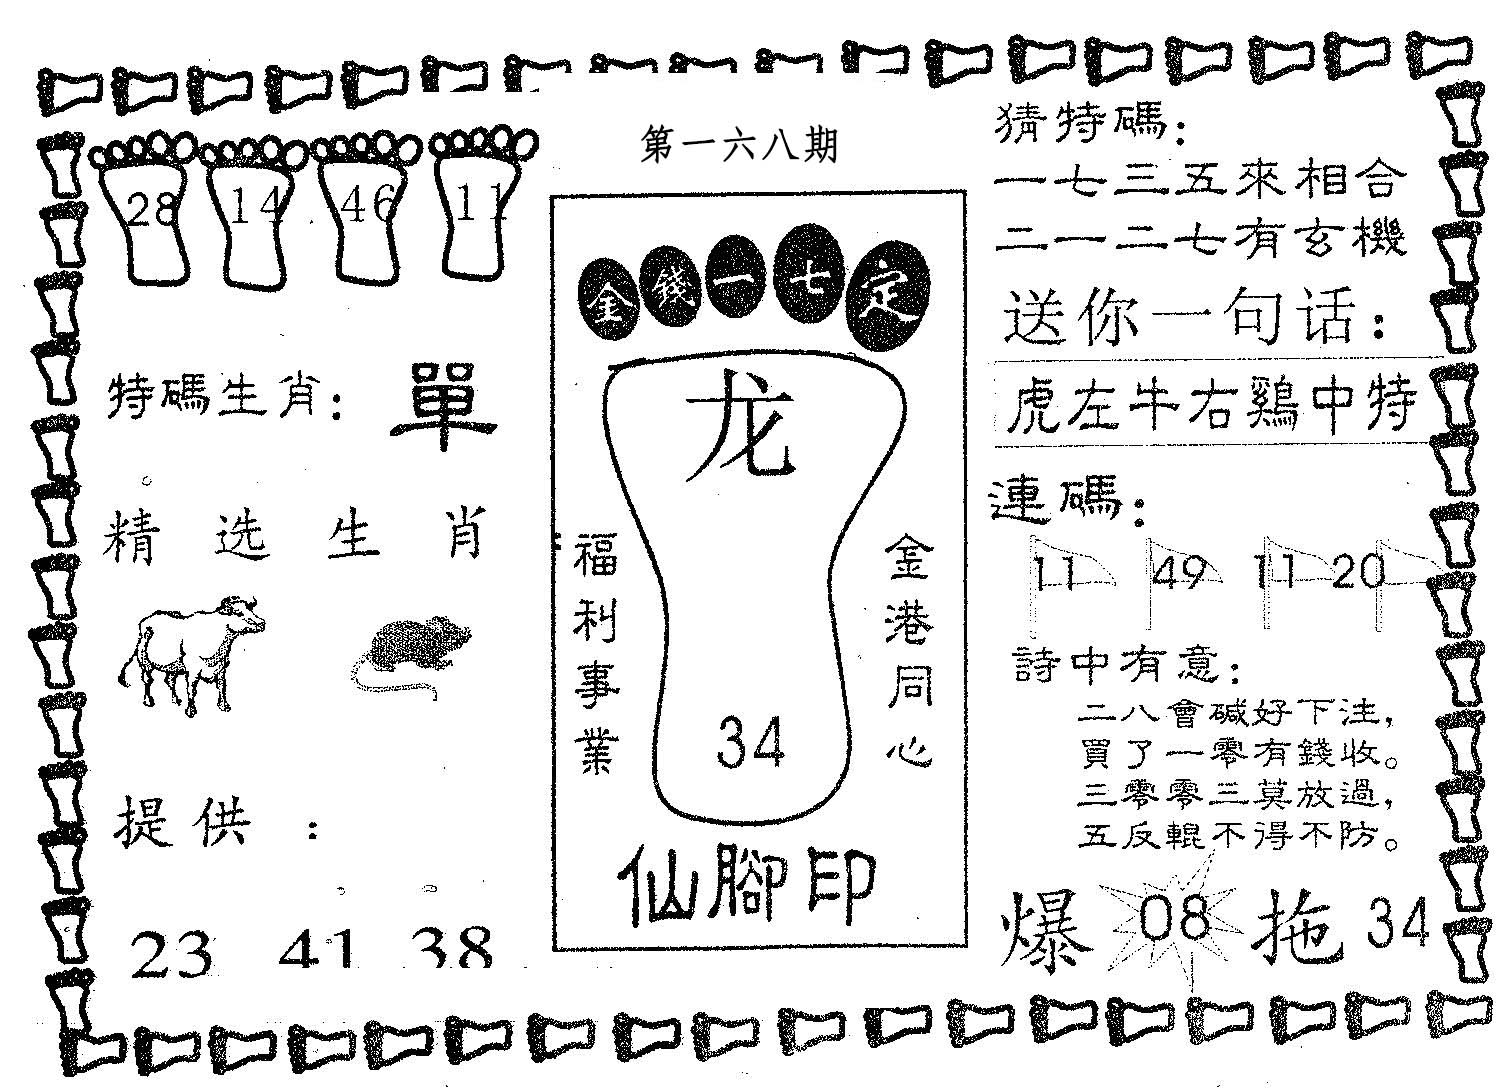 第一六八期
28 14 46 11
特碼生肖：單
精选生肖
提供：
23 41 38
金錢一七定
龙
福利事業
金港同心
34
仙腳印
猜特碼：
一七三五來相合
二一二七有玄機
送你一句话：
虎左牛右鷄中特
連碼：
11 49 11 20
詩中有意：
二八會碱好下注，
買了一零有錢收。
三零零三莫放過，
五反輥不得不防。
爆 08 拖 34